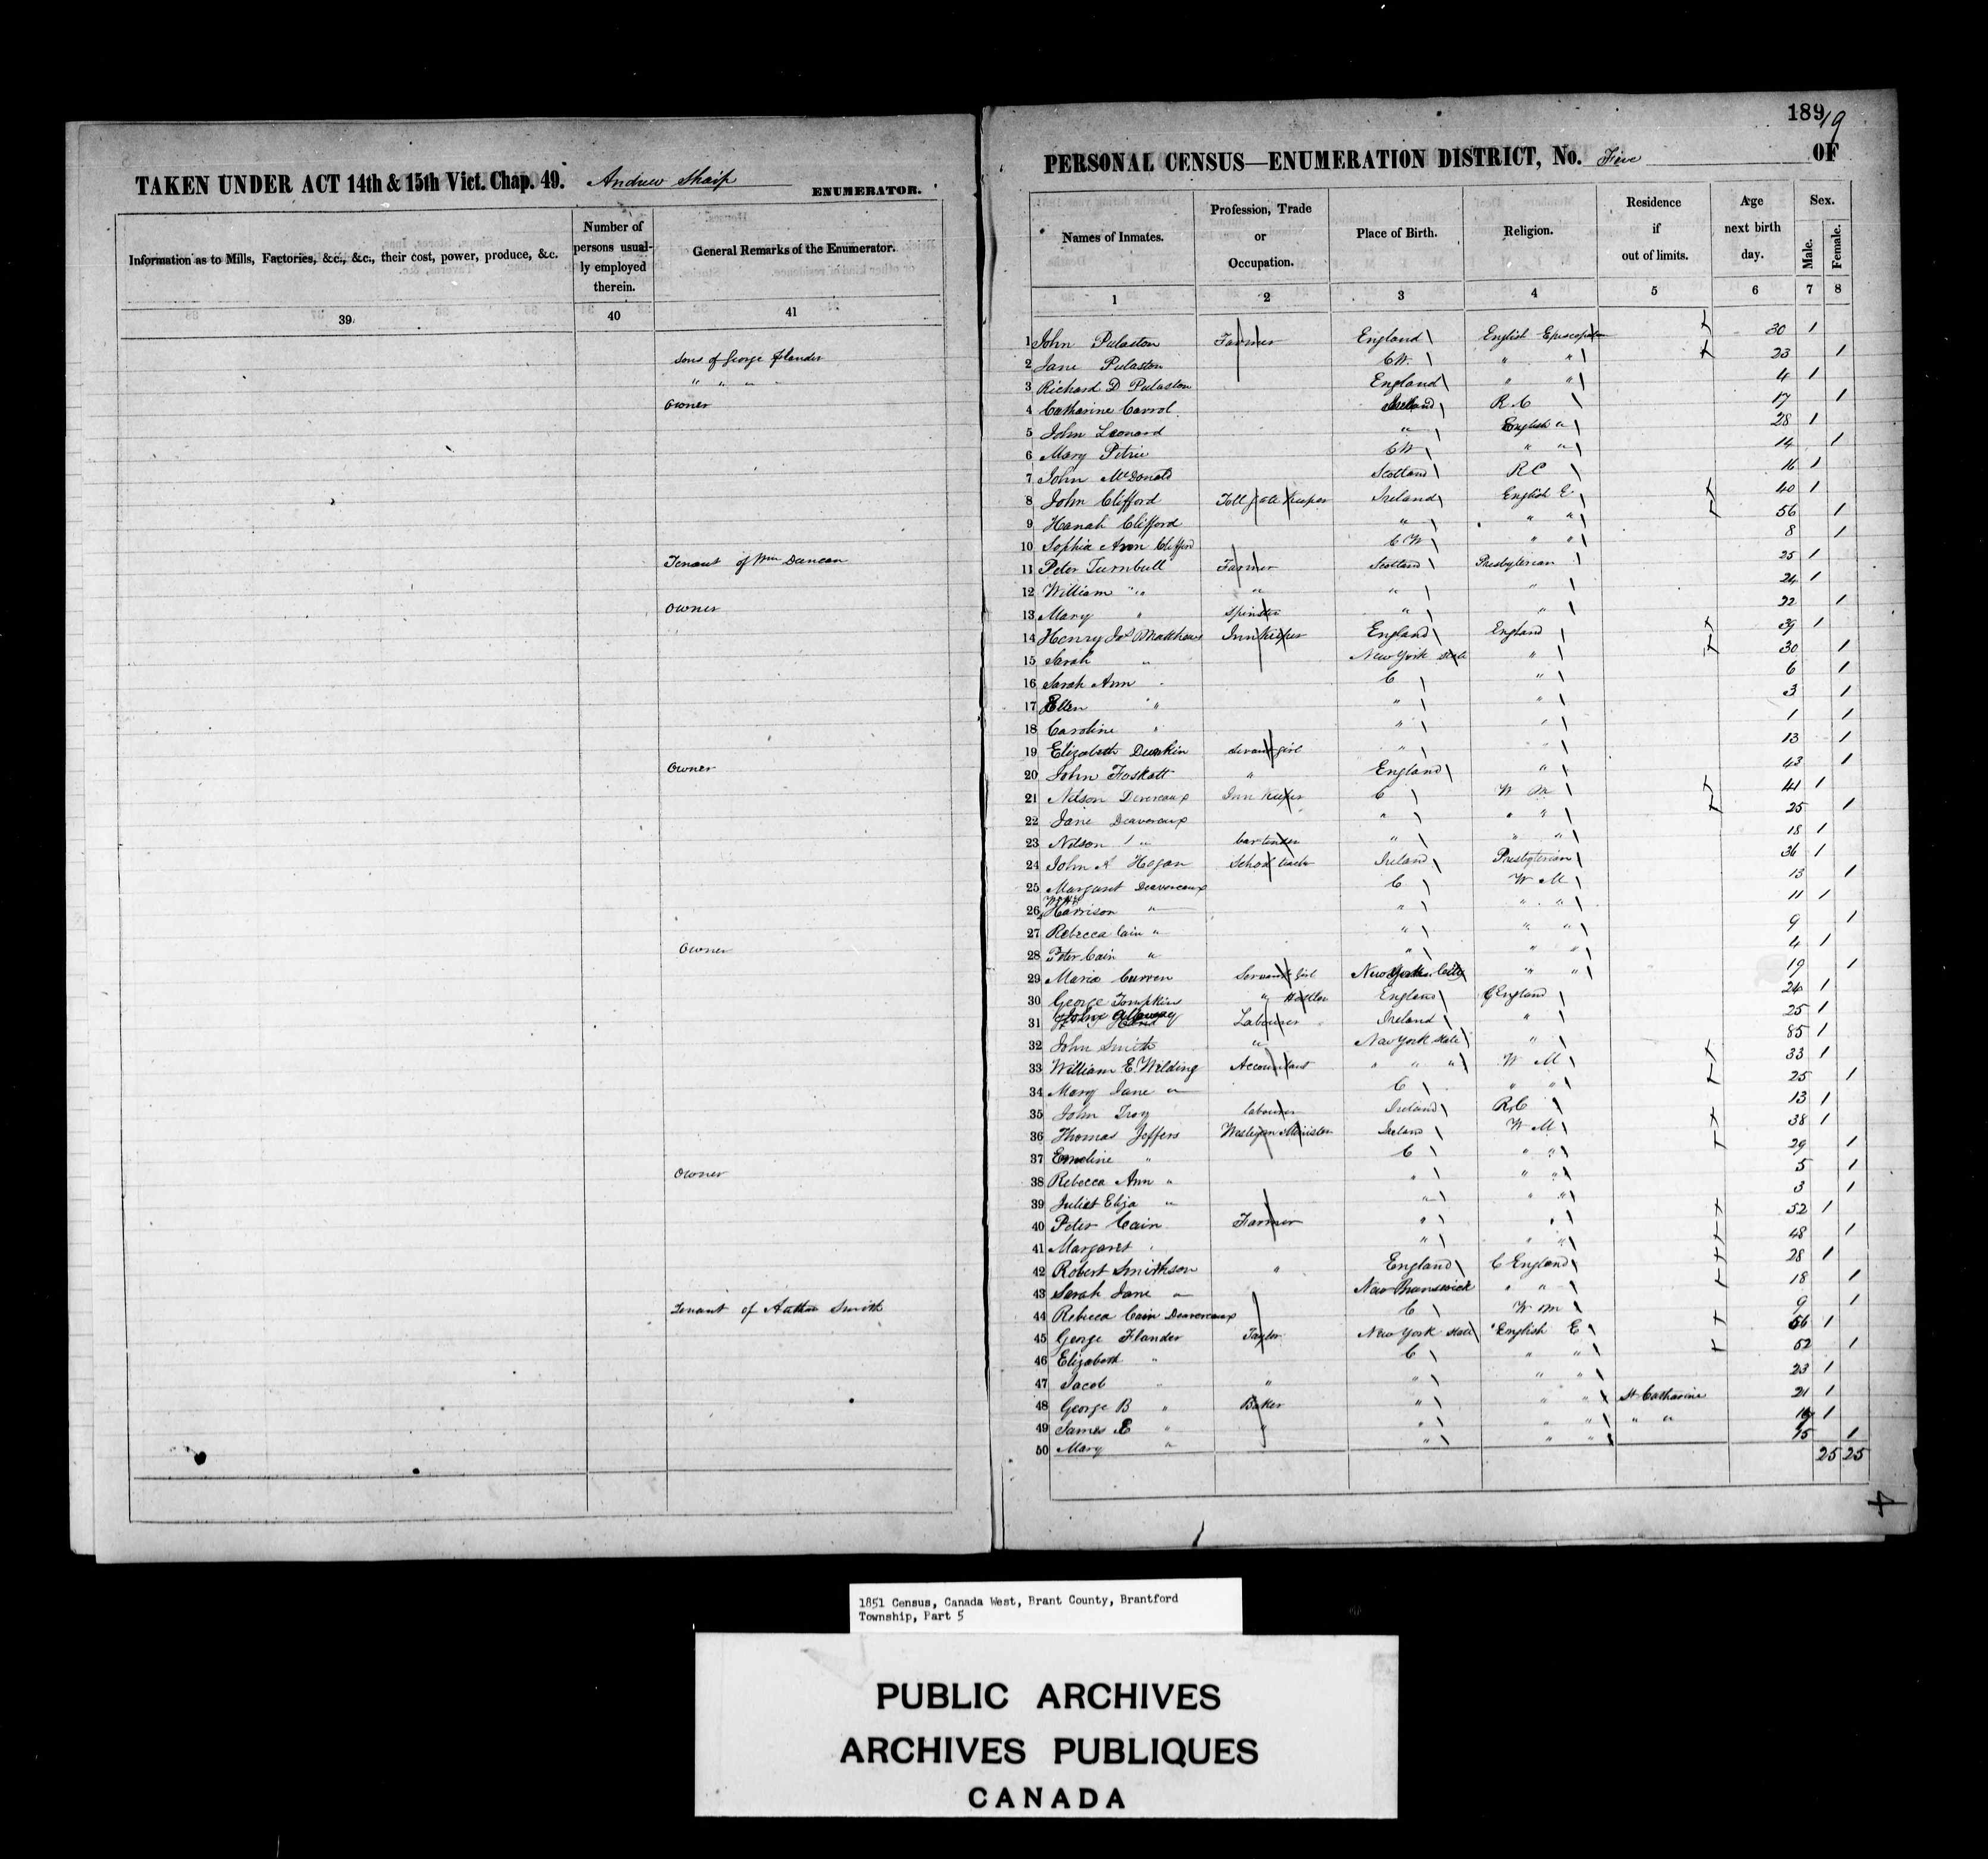 TAKEN UNDER ACT 14th & 15th Vict. Chap. 49. Andrew Sharp ENUMERATOR.
Information as to Mills, Factories, &c., &c., their cost, power, produce, &c.
Number of persons usually employed therein.
General Remarks of the Enumerator.
39 40 41
Sons of George Flander
" " " "
Owner
Tenant of Wm Duncan
Owner
Owner
Owner
Owner
Tenant of Smith
189
19
PERSONAL CENSUS—ENUMERATION DISTRICT, No. Five OF
Names of Inmates.
Profession, Trade or Occupation.
Place of Birth.
Religion.
Residence if out of limits.
Age next birth day.
Sex.
Male. Female.
1 2 3 4 5 6 7 8
1 John Pulaston Farmer England English Episcopalian 30 1
2 Jane Pulaston C W. " " 23 1
3 Richard D Pulaston England " " 4 1
4 Catharine Carrol Ireland R C 17 1
5 John Leonard " English " 28 1
6 Mary Petrie C W " " 14 1
7 John McDonald Scotland R C 16 1
8 John Clifford Toll gate Keeper Ireland English E 40 1
9 Hanah Clifford " " " 56 1
10 Sophia Ann Clifford C W " " 8 1
11 Peter Turnbull Farmer Scotland Presbyterian 25 1
12 William " " " " 24 1
13 Mary " Spinster " " 22 1
14 Henry Jos Matthews Inn Keeper England England 39 1
15 Sarah " New York State " 30 1
16 Sarah Ann " C " 6 1
17 Ellen " " " 3 1
18 Caroline " " " 1 1
19 Elizabeth Dunkin servant girl " " 13 1
20 John Foskett " England " 43 1
21 Nelson Devereaux Inn Keeper C W M 41 1
22 Jane Deavereaux " " " 25 1
23 Nelson " bar tender " " " 18 1
24 John A Hogan School teacher Ireland Presbyterian 36 1
25 Margaret Deavereaux C W M 13 1
26 Harrison " " " " 11 1
27 Rebecca Cain " " " " 9 1
28 Peter Cain " " " " 4 1
29 Maria Curren Servant girl New York City " " 19 1
30 George Tompkins " Hostler England C England 24 1
31 Labourer Ireland " 25 1
32 John Smith " New York State " 85 1
33 William E. Wilding Accountant " " " W M 33 1
34 Mary Jane " C " " 25 1
35 John Troy labourer Ireland R C 13 1
36 Thomas Jeffers Wesleyan Minister Ireland W M 38 1
37 Emeline " C " " 29 1
38 Rebecca Ann " " " " 5 1
39 Juliet Eliza " " " " 3 1
40 Peter Cain Farmer " " 52 1
41 Margaret " " " " 48 1
42 Robert Smithson " England C England 28 1
43 Sarah Jane " New Brunswick " " 18 1
44 Rebecca Cain Deavereaux C W M 9 1
45 George Flander Taylor New York State English E 56 1
46 Elizabeth " C " " 52 1
47 Jacob " " " " " 23 1
48 George B " Baker " " " St Catharine 21 1
49 James E " " " " " " " 1
50 Mary " " " " 1
25 25
4
1851 Census, Canada West, Brant County, Brantford
Township, Part 5
PUBLIC ARCHIVES
ARCHIVES PUBLIQUES
CANADA